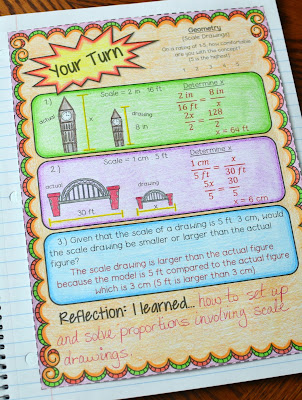 Your Turn
Geometry
(Scale Drawings)
On a rating of 1-5, how comfortable
are you with this concept?
(5 is the highest)
1 2 3 4 5
1.) Scale = 2 in : 16 ft
actual
x
drawing
8 in
Determine x
2 in / 16 ft = 8 in / x
2x / 2 = 128 / 2
x = 64 ft
2.) Scale = 1 cm : 5 ft
actual
30 ft
drawing
x
Determine x
1 cm / 5 ft = x / 30 ft
5x / 5 = 30 / 5
x = 6 cm
3.) Given that the scale of a drawing is 5 ft : 3 cm, would
the scale drawing be smaller or larger than the actual
figure?
The scale drawing is larger than the actual figure
because the model is 5 ft compared to the actual figure
which is 3 cm (5 ft is larger than 3 cm)
Reflection: I learned... how to set up
and solve proportions involving scale
drawings.